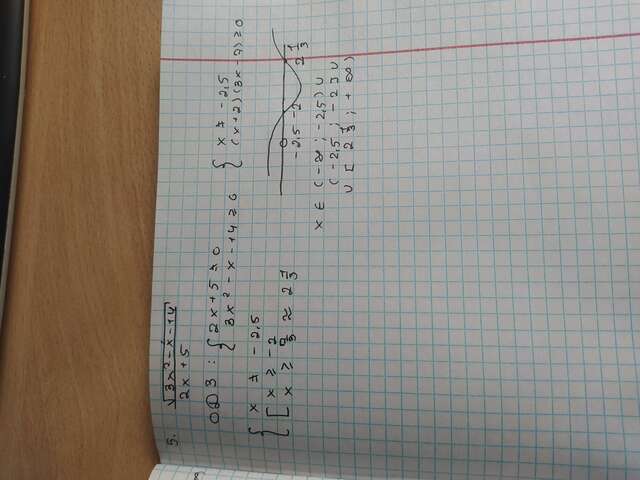 5. √(3x² - x - 14) / (2x + 5)
ОДЗ: { 2x + 5 ≠ 0
3x² - x - 14 ≥ 0
{ x ≠ -2,5
(x + 2)(3x - 7) ≥ 0
{ x ≠ -2,5
[ x ≥ -2
x ≥ 7/3 ≈ 2 1/3
-2,5 -2 2 1/3
x ∈ (-∞; -2,5) ∪
(-2,5; -2] ∪
∪ [2 1/3; +∞)